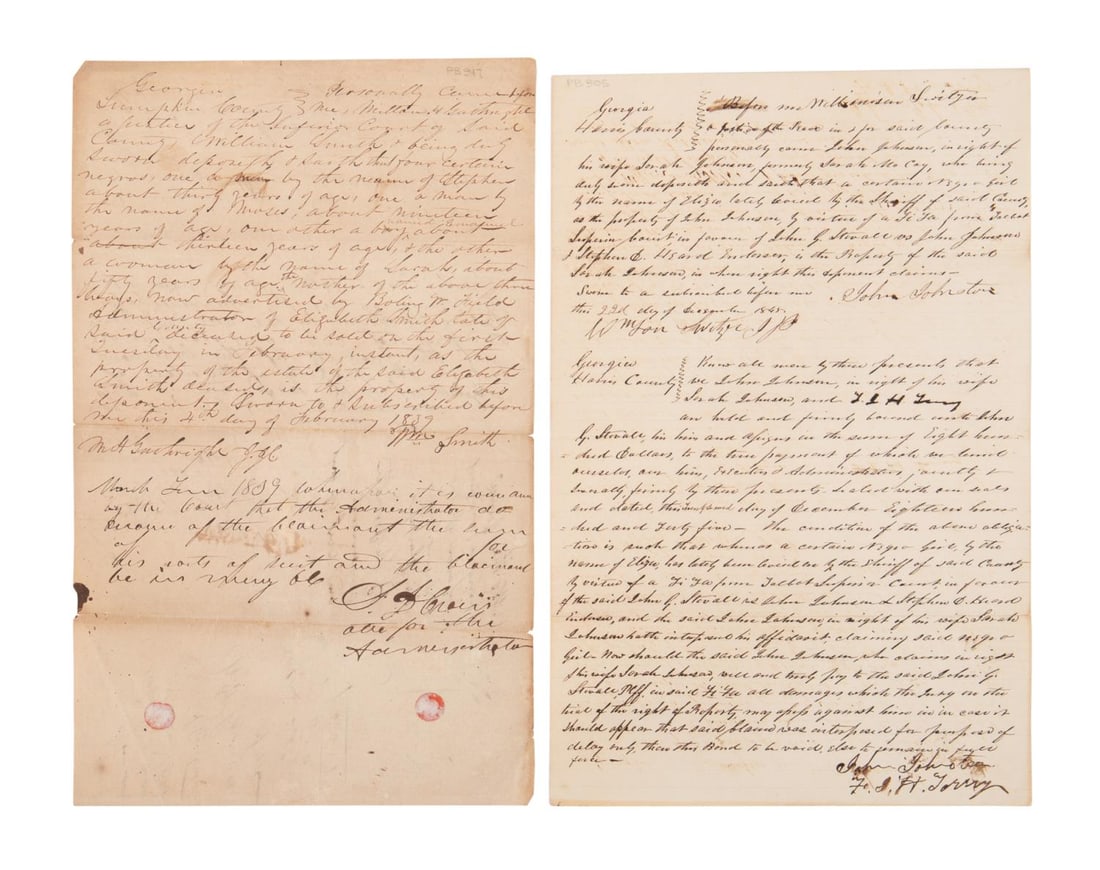 PB 947
Georgia Personally came before
Lumpkin County me, Milton H Gathright
a justice of the Inferior Court of said
County William Smith & being duly
Sworn deposeth & saith that four certain
negros, one a man by the name of Stephen
about thirty years of age, one a man by
the name of Moses, about nineteen
years of age, one other a boy named
about thirteen years of age, & the other
a woman by the name of Sarah, about
fifty years of age the Mother of the above three
boys, now advertised by Boling W. Field
Administrator of Elizabeth Smith late of
said County deceased, to be sold on the first
Tuesday in February, instant, as the
property of the estate of the said Elizabeth
Smith deceased, is the property of this
deponent, Sworn to & Subscribed before
me this 4th day of February 1839
Wm Smith
M H Gathright J.I.C
March Term 1839 whereupon it is
by the Court that the Administrator do
of the Claimant the sum
of for
his costs of suit and the claimant
be in mercy &c
atto for the
Administrator
PB 905
Georgia Before me Wilkinson Switzer
Harris County a justice of the Peace in & for said County
personally came John Johnson, in right of
his wife Sarah Johnson, formerly Sarah McCoy, who being
duly sworn deposeth and saith that a certain Negro Girl
by the name of Eliza lately levied by the Sheriff of said County,
as the property of John Johnson, by virtue of a Fi Fa from Talbot
Superior Court in favour of John G. Stovall vs John Johnson
& Stephen D. Heard Endorser, is the Property of the said
Sarah Johnson, in whose right this deponent claims—
Sworn to & subscribed before me John Johnston
this 22d day of December 1845
Georgia Know all men by these presents that
Harris County we John Johnson, in right of his wife
Sarah Johnson, and F I H Terry
are held and firmly bound unto John
G. Stovall, his heirs and assigns in the sum of Eight hun=
=dred Dollars, to the true payment of which we bind
ourselves, our heirs, Executors & Administrators, jointly &
severally, firmly by these presents. Sealed with our seals
and dated, this day of December Eighteen hun=
=dred and Forty five— The condition of the above obliga=
=tion is such that whereas a certain Negro Girl, by the
name of Eliza, has lately been levied on by the Sheriff of said County
by virtue of a Fi Fa from Talbot Superior Court in favour
of the said John G. Stovall vs John Johnson & Stephen D. Heard
Endorser, and the said John Johnson, in right of his wife Sarah
Johnson hath interposed his affidavit claiming said negro
Girl— Now should the said John Johnson, who claims in right
of his wife Sarah Johnson, well and truly pay to the said John G.
Stovall Plff in said Fi Fa all damages which the Jury on the
trial of the right of Property, may assess against him in case it
should appear that said claim was interposed for purpose of
delay only, then this Bond to be void, else to remain in full
force—
John Johnston
F. I. H. Terry